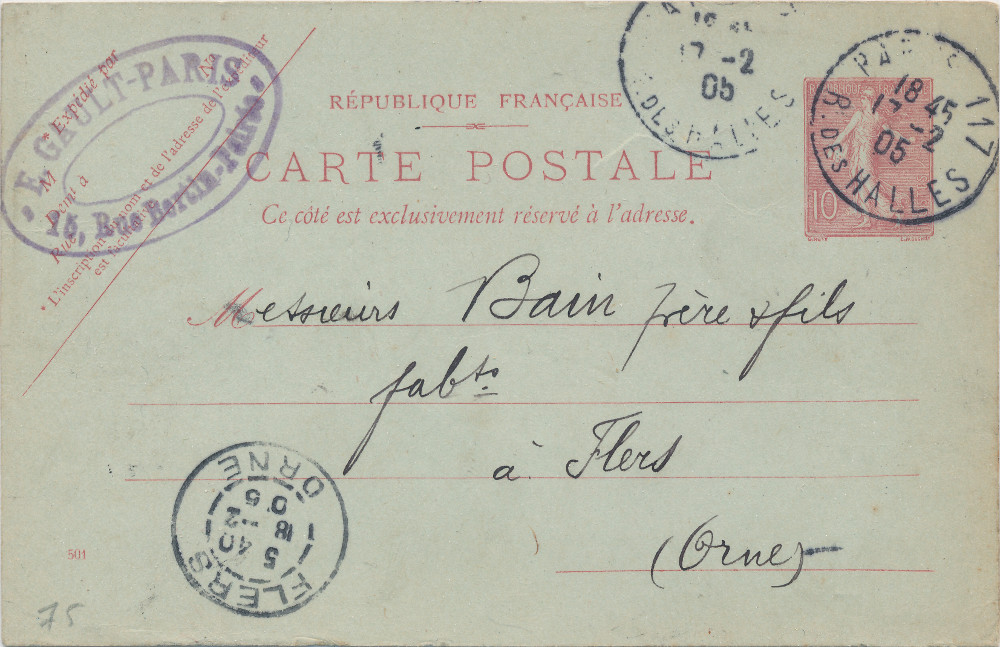 E. GAULT-PARIS
15, Rue Bertin-Poirée
* Expédié par
M
Dem^t à
Rue
N°
* L'inscription du nom et de l'adresse de l'expéditeur
est facultative.
RÉPUBLIQUE FRANÇAISE
CARTE POSTALE
Ce côté est exclusivement réservé à l'adresse.
17 -2
05
R. DES HALLES
PARIS 117
18 45
17 -2
05
R. DES HALLES
10
Messieurs Bain frère & fils
fabts
à Flers
(Orne)
FLERS
5 40
18 -2
05
ORNE
501
75